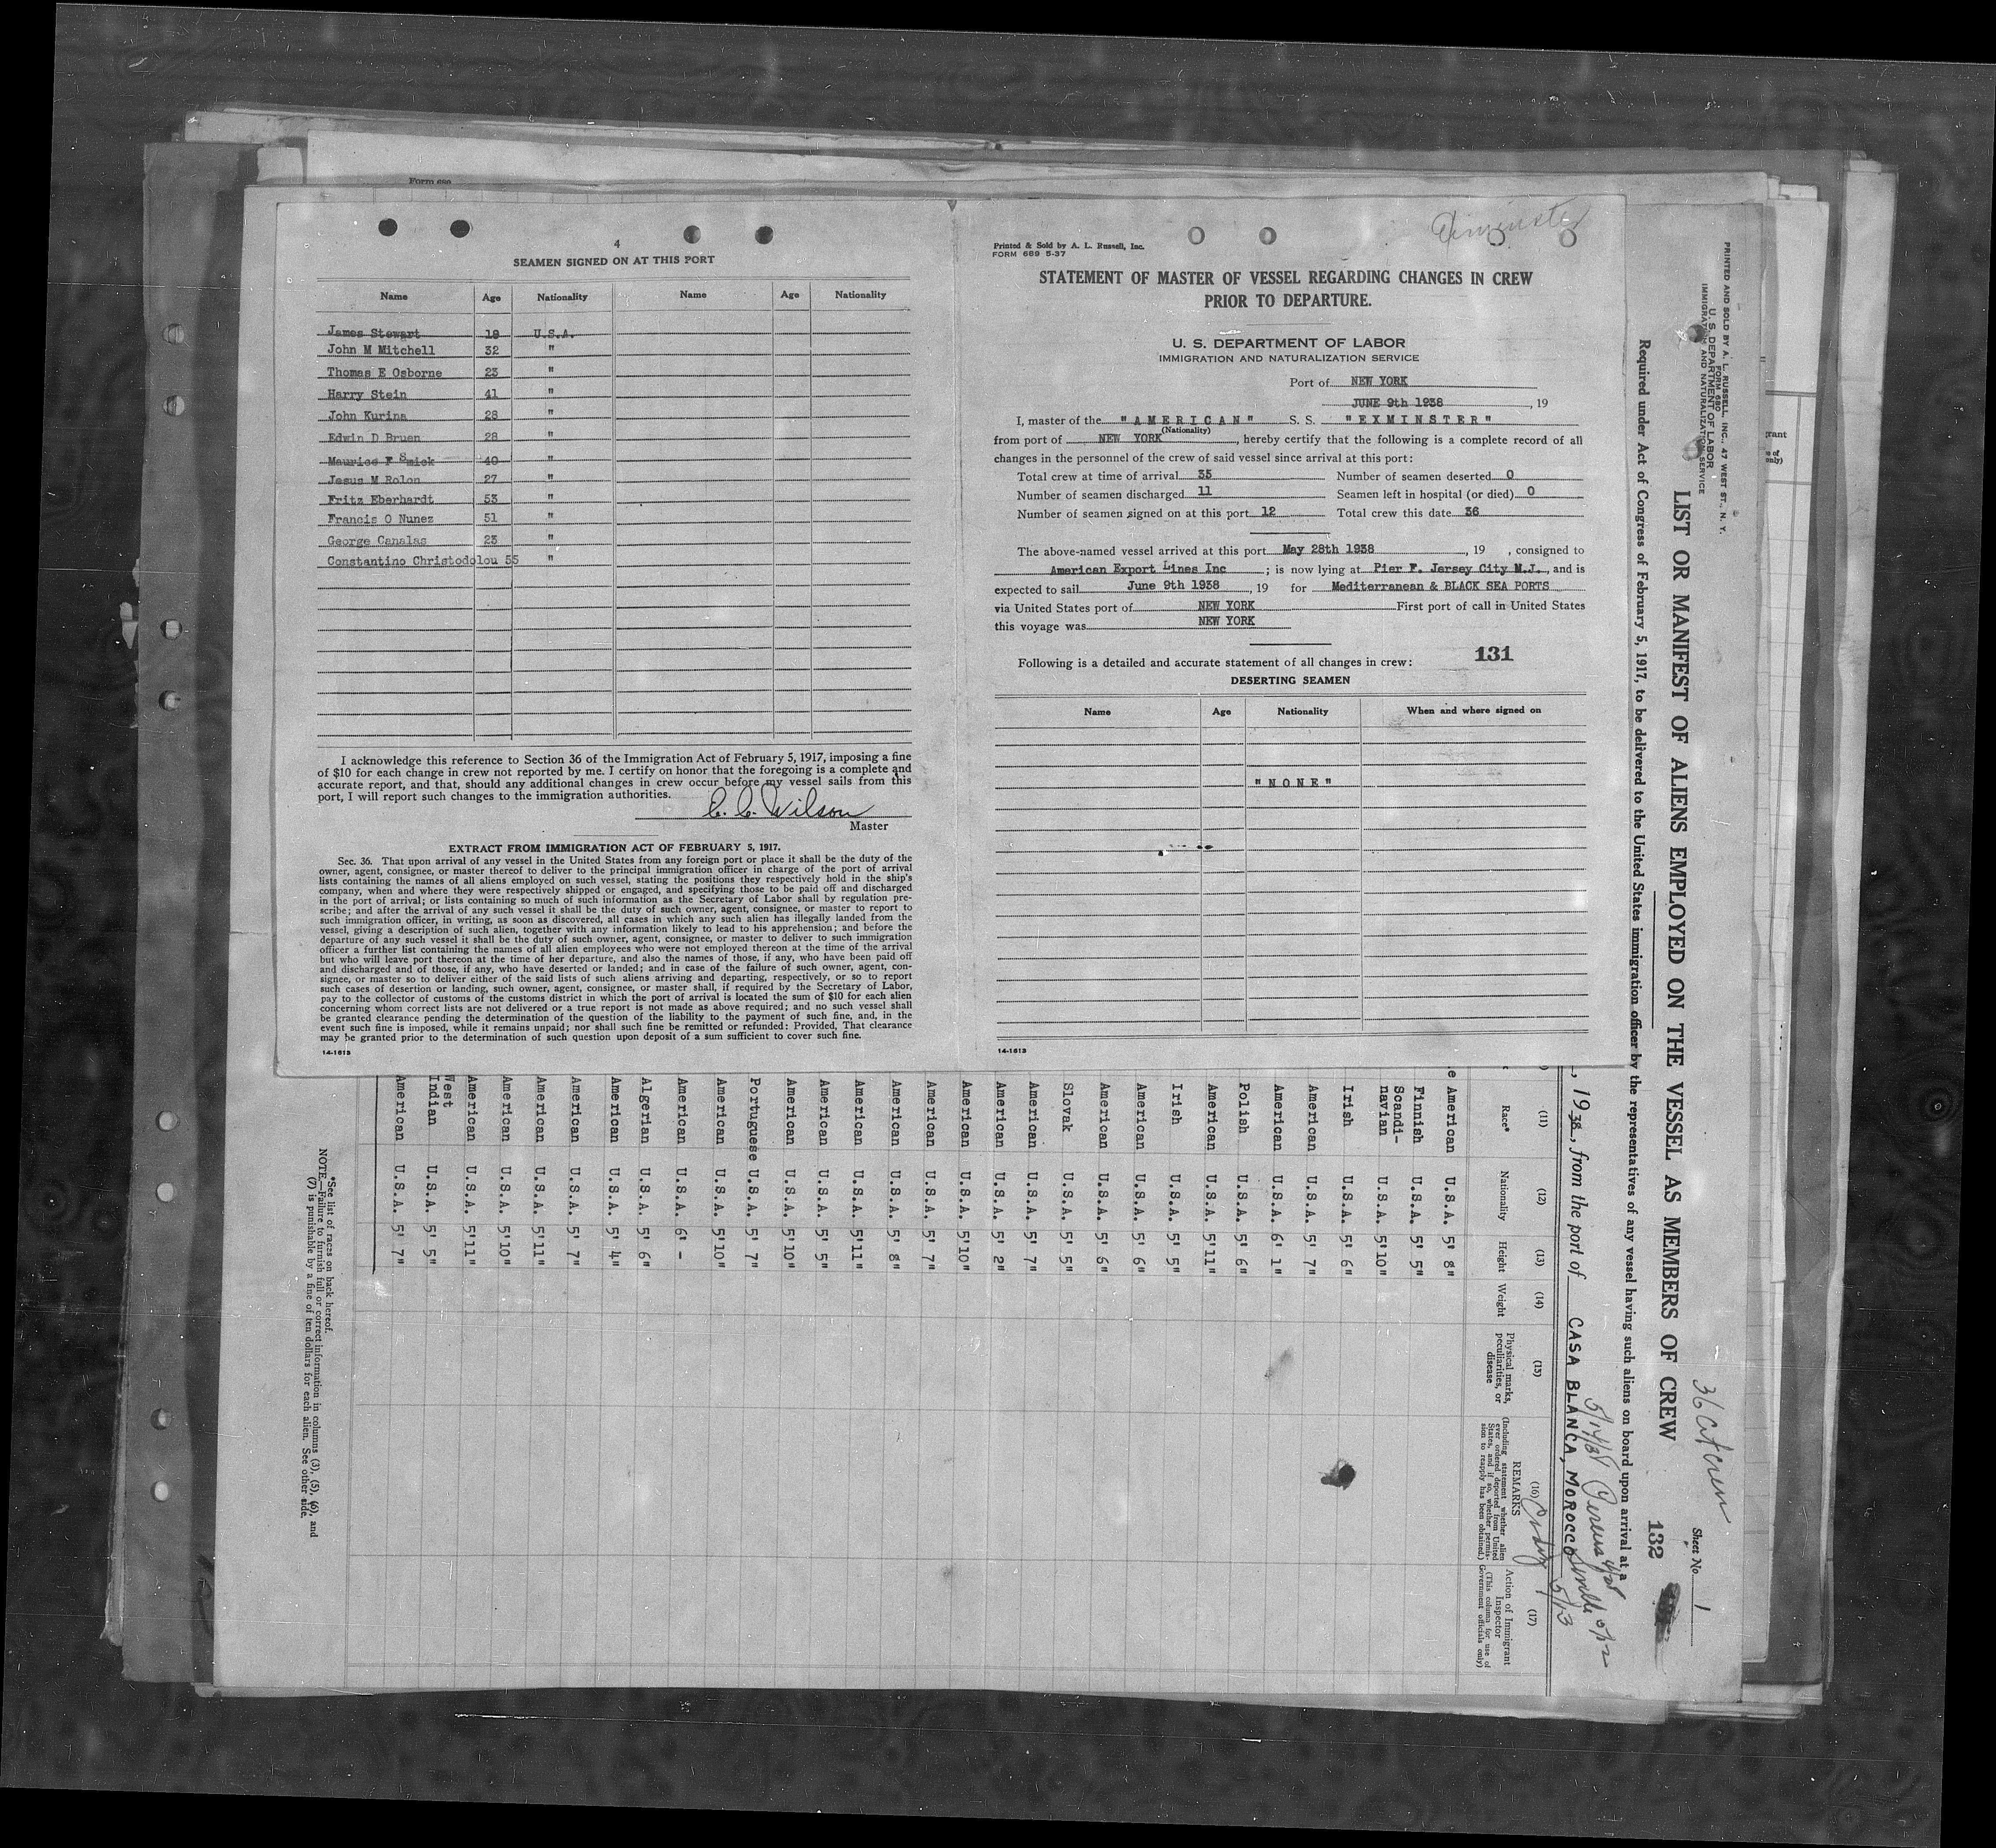 Form 689
4
SEAMEN SIGNED ON AT THIS PORT
Name Age Nationality Name Age Nationality
James Stewart 19 U.S.A.
John M Mitchell 32 "
Thomas E Osborne 23 "
Harry Stein 41 "
John Kurina 28 "
Edwin D Bruen 28 "
Maurice F Smick 40 "
Jesus M Rolon 27 "
Fritz Eberhardt 53 "
Francis O Nunez 51 "
George Canalas 23 "
Constantino Christodolou 55 "
I acknowledge this reference to Section 36 of the Immigration Act of February 5, 1917, imposing a fine
of $10 for each change in crew not reported by me. I certify on honor that the foregoing is a complete and
accurate report, and that, should any additional changes in crew occur before my vessel sails from this
port, I will report such changes to the immigration authorities.
C. C. Wilson
Master
EXTRACT FROM IMMIGRATION ACT OF FEBRUARY 5, 1917.
Sec. 36. That upon arrival of any vessel in the United States from any foreign port or place it shall be the duty of the
owner, agent, consignee, or master thereof to deliver to the principal immigration officer in charge of the port of arrival
lists containing the names of all aliens employed on such vessel, stating the positions they respectively hold in the ship's
company, when and where they were respectively shipped or engaged, and specifying those to be paid off and discharged
in the port of arrival; or lists containing so much of such information as the Secretary of Labor shall by regulation pre-
scribe; and after the arrival of any such vessel it shall be the duty of such owner, agent, consignee, or master to report to
such immigration officer, in writing, as soon as discovered, all cases in which any such alien has illegally landed from the
vessel, giving a description of such alien, together with any information likely to lead to his apprehension; and before the
departure of any such vessel it shall be the duty of such owner, agent, consignee, or master to deliver to such immigration
officer a further list containing the names of all alien employees who were not employed thereon at the time of the arrival
but who will leave port thereon at the time of her departure, and also the names of those, if any, who have been paid off
and discharged and of those, if any, who have deserted or landed; and in case of the failure of such owner, agent, con-
signee, or master so to deliver either of the said lists of such aliens arriving and departing, respectively, or so to report
such cases of desertion or landing, such owner, agent, consignee, or master shall, if required by the Secretary of Labor,
pay to the collector of customs of the customs district in which the port of arrival is located the sum of $10 for each alien
concerning whom correct lists are not delivered or a true report is not made as above required; and no such vessel shall
be granted clearance pending the determination of the question of the liability to the payment of such fine, and, in the
event such fine is imposed, while it remains unpaid; nor shall such fine be remitted or refunded: Provided, That clearance
may be granted prior to the determination of such question upon deposit of a sum sufficient to cover such fine.
14-1613
Exminster
Printed & Sold by A. L. Russell, Inc.
FORM 689 5-37
STATEMENT OF MASTER OF VESSEL REGARDING CHANGES IN CREW
PRIOR TO DEPARTURE.
U. S. DEPARTMENT OF LABOR
IMMIGRATION AND NATURALIZATION SERVICE
Port of NEW YORK
JUNE 9th 1938, 19
I, master of the "AMERICAN" S. S. "EXMINSTER"
(Nationality)
from port of NEW YORK, hereby certify that the following is a complete record of all
changes in the personnel of the crew of said vessel since arrival at this port:
Total crew at time of arrival 35 Number of seamen deserted 0
Number of seamen discharged 11 Seamen left in hospital (or died) 0
Number of seamen signed on at this port 12 Total crew this date 36
The above-named vessel arrived at this port May 28th 1938, 19 , consigned to
American Export Lines Inc ; is now lying at Pier F. Jersey City N.J., and is
expected to sail June 9th 1938, 19 for Mediterranean & BLACK SEA PORTS
via United States port of NEW YORK First port of call in United States
this voyage was NEW YORK
Following is a detailed and accurate statement of all changes in crew: 131
DESERTING SEAMEN
Name Age Nationality When and where signed on
"NONE"
14-1613
PRINTED AND SOLD BY A. L. RUSSELL, INC., 47 WEST ST., N. Y.
FORM 680
U. S. DEPARTMENT OF LABOR
IMMIGRATION AND NATURALIZATION SERVICE
36 Cit crew
Sheet No 1
LIST OR MANIFEST OF ALIENS EMPLOYED ON THE VESSEL AS MEMBERS OF CREW 132
Required under Act of Congress of February 5, 1917, to be delivered to the United States immigration officer by the representatives of any vessel having such aliens on board upon arrival at a
, 1938, from the port of CASA BLANCA, MOROCCO
5/13
(11) (12) (13) (14) (15) (16) (17)
Race* Nationality Height Weight Physical marks, peculiarities, or disease REMARKS (Including statement whether alien ever ordered deported from United States, and if so, whether permission to reapply has been obtained.) Action of Immigrant Inspector (This column for use of Government officials only)
e American U.S.A. 5' 8"
Finnish U.S.A. 5' 5"
Scandi-
navian U.S.A. 5'10"
Irish U.S.A. 5' 6"
American U.S.A. 5' 7"
American U.S.A. 6' 1"
Polish U.S.A. 5' 6"
American U.S.A. 5'11"
Irish U.S.A. 5' 5"
American U.S.A. 5' 6"
American U.S.A. 5' 6"
Slovak U.S.A. 5' 5"
American U.S.A. 5' 7"
American U.S.A. 5' 2"
American U.S.A. 5'10"
American U.S.A. 5' 7"
American U.S.A. 5' 8"
American U.S.A. 5'11"
American U.S.A. 5' 5"
American U.S.A. 5'10"
Portuguese U.S.A. 5' 7"
American U.S.A. 5'10"
American U.S.A. 6' -
Algerian U.S.A. 5' 6"
American U.S.A. 5' 4"
American U.S.A. 5' 7"
American U.S.A. 5'11"
American U.S.A. 5'10"
American U.S.A. 5'11"
West
Indian U.S.A. 5' 5"
American U.S.A. 5' 7"
*See list of races on back hereof.
NOTE.—Failure to furnish full or correct information in columns (3), (5), (6), and
(7) is punishable by a fine of ten dollars for each alien. See other side.